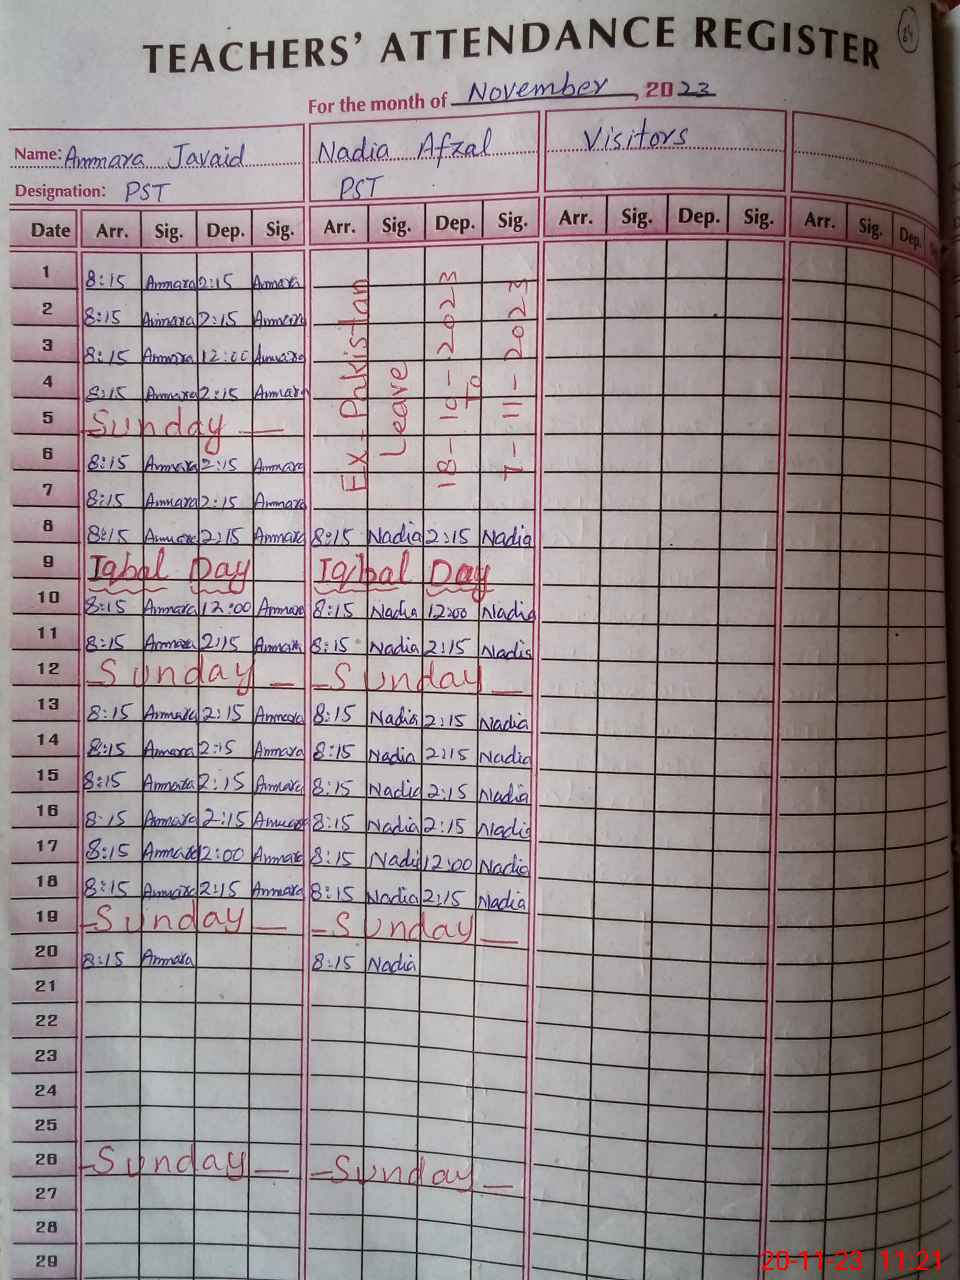 64
TEACHERS' ATTENDANCE REGISTER
For the month of November, 2023
Name: Ammara Javaid Nadia Afzal Visitors
Designation: PST PST
Date Arr. Sig. Dep. Sig. Arr. Sig. Dep. Sig. Arr. Sig. Dep. Sig. Arr. Sig. Dep.
Ex-Pakistan
Leave
18-10-2023
To
7-11-2023
1 8:15 Ammara 2:15 Ammara
2 8:15 Ammara 2:15 Ammara
3 8:15 Ammara 12:00 Ammara
4 8:15 Ammara 2:15 Ammara
5 Sunday
6 8:15 Ammara 2:15 Ammara
7 8:15 Ammara 2:15 Ammara
8 8:15 Ammara 2:15 Ammara 8:15 Nadia 2:15 Nadia
9 Iqbal Day Iqbal Day
10 8:15 Ammara 12:00 Ammara 8:15 Nadia 12:00 Nadia
11 8:15 Ammara 2:15 Ammara 8:15 Nadia 2:15 Nadia
12 Sunday Sunday
13 8:15 Ammara 2:15 Ammara 8:15 Nadia 2:15 Nadia
14 8:15 Ammara 2:15 Ammara 8:15 Nadia 2:15 Nadia
15 8:15 Ammara 2:15 Ammara 8:15 Nadia 2:15 Nadia
16 8:15 Ammara 2:15 Ammara 8:15 Nadia 2:15 Nadia
17 8:15 Ammara 12:00 Ammara 8:15 Nadia 12:00 Nadia
18 8:15 Ammara 2:15 Ammara 8:15 Nadia 2:15 Nadia
19 Sunday Sunday
20 8:15 Ammara 8:15 Nadia
21
22
23
24
25
26 Sunday Sunday
27
28
29
20-11-23 11:21